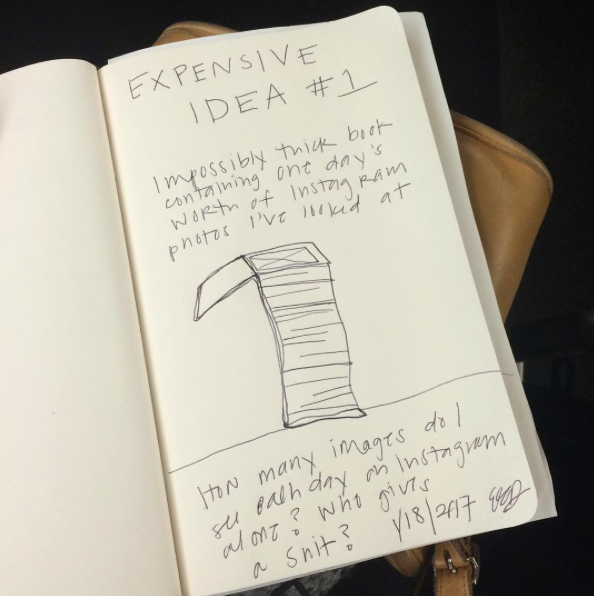 EXPENSIVE
IDEA #1
Impossibly thick book
containing one day's
worth of Instagram
photos I've looked at
How many images do I
see each day on Instagram
alone? Who gives
a shit? 1/18/2017